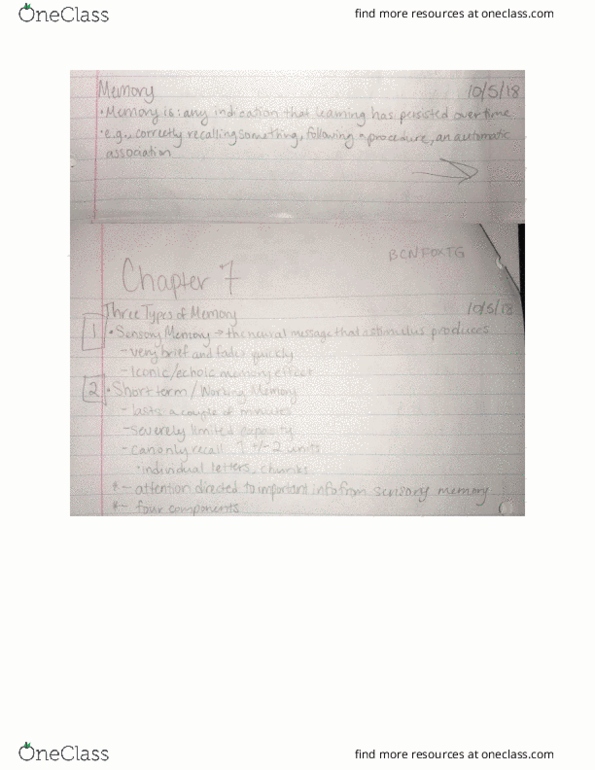 OneClass
find more resources at oneclass.com
Memory 10/5/18
• Memory is: any indication that learning has persisted over time
• e.g., correctly recalling something, following a procedure, an automatic
association
BCNFOXTG
Chapter 7
Three Types of Memory 10/5/18
1 • Sensory Memory → the neural message that a stimulus produces
- very brief and fades quickly
- Iconic/echoic memory effect
2 • Short term / Working Memory
- lasts a couple of minutes
- severely limited capacity
- can only recall 7 +/- 2 units
• individual letters, chunks
* - attention directed to important info from sensory memory
* - four components
OneClass
find more resources at oneclass.com